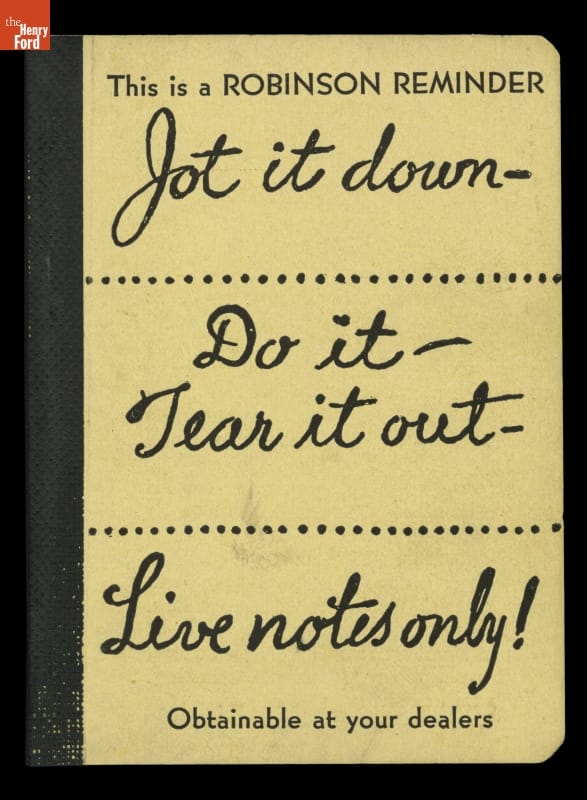 the
Henry
Ford
This is a ROBINSON REMINDER
Jot it down-
Do it—
Tear it out-
Live notes only!
Obtainable at your dealers